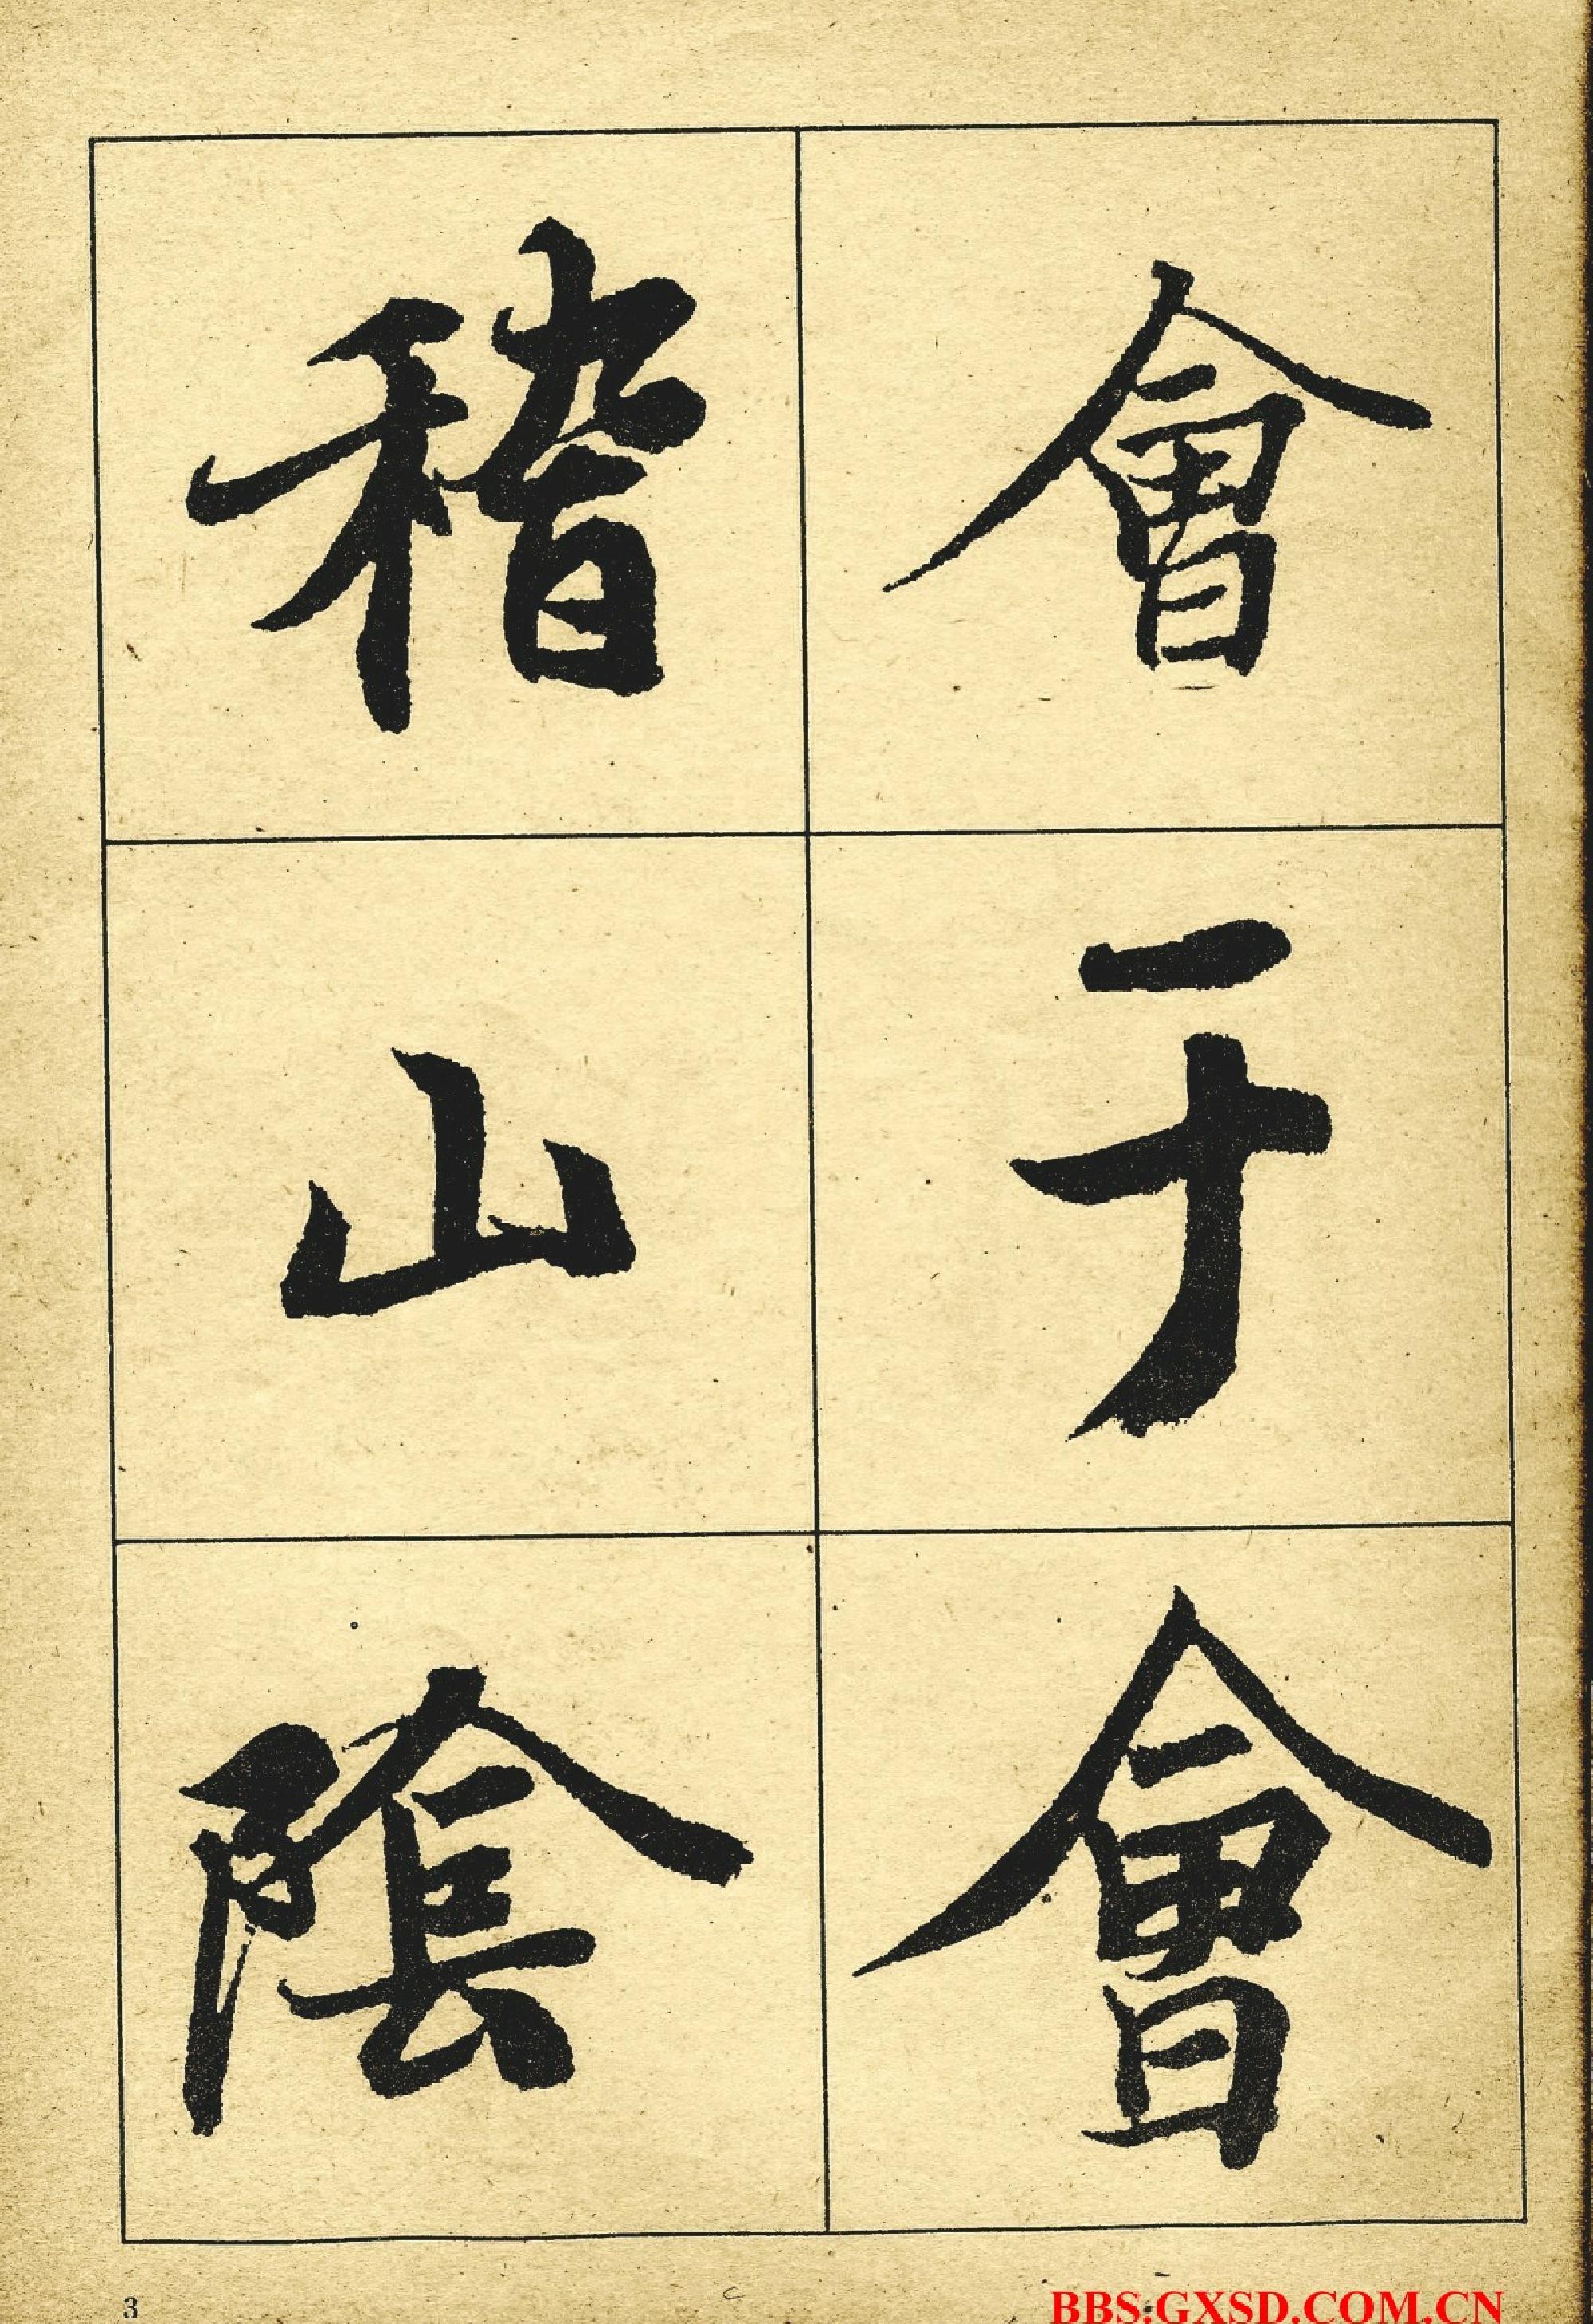 會于會
稽山陰
3
BBS:GXSD.COM.CN